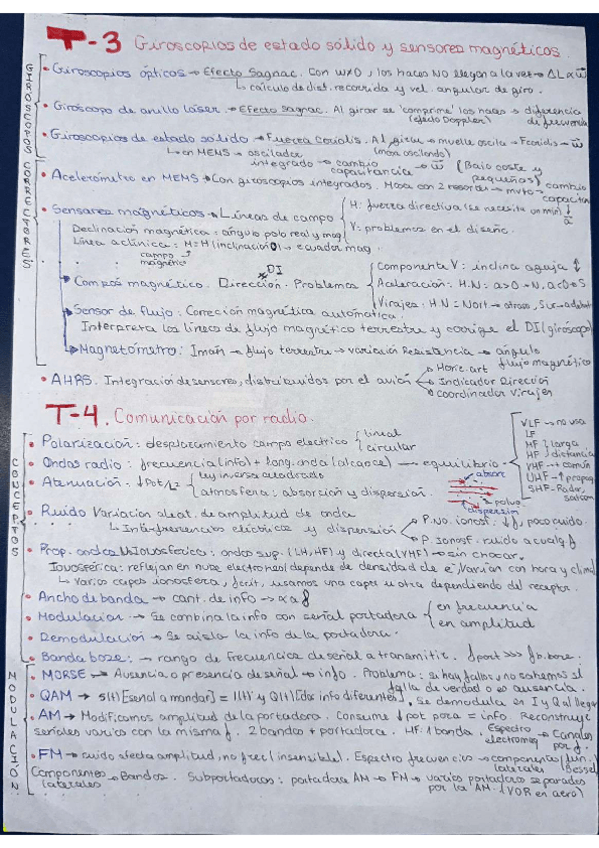 T-3 Giroscopios de estado sólido y sensores magnéticos.
GIROSCOPOS CORRECTORES
• Giroscopios ópticos → Efecto Sagnac. Con w≠0, los haces NO llegan a la vez → ΔL α w̄
↳ cálculo de dist. recorrida y vel. angular de giro.
• Giroscopo de anillo láser → Efecto Sagnac. Al girar se 'comprime' los haces → diferencia
(efecto Doppler) de frecuencia
• Giroscopios de estado sólido → Fuerza coriolis. Al girar → muelle oscila → Fcoriolis → w̄
↳ en MEMS → oscilador (masa oscilando)
integrado → cambio capacitancia → w̄ (Bajo coste y pequeños)
• Acelerómetro en MEMS → Con giroscopios integrados. Masa con 2 resortes → mvto → cambio
capacitan
• Sensores magnéticos → Líneas de campo H: fuerza directiva (se necesita un min) ↓ā
V: problemas en el diseño.
Declinación magnética: ángulo polo real y mag
Línea aclínica: M=H (inclinación 0) → ecuador mag.
campo magnético
DI
→ Compás magnético. Dirección. Problemas Componente V: inclina aguja ↕
Aceleración: H.N: a>0 → N, a<0 → S
Virajes: H.N = Norte → atraso, Sur → adelanto
→ Sensor de flujo: Correción magnética automática.
Interpreta las líneas de flujo magnético terrestre y corrige el DI (giroscopo)
→ Magnetómetro: Imán → flujo terrestre → variación Resistencia → ángulo
flujo magnético
• AHRS. Integración de sensores, distribuidos por el avión → Horiz. art
→ Indicador Dirección
→ coordinador virajes
T-4. Comunicación por radio.
CONCEPTOS
• Polarización: desplazamiento campo electrico lineal
circular
• Ondas radio: frecuencia (info) + long. onda (alcance) → equilibrio
VLF → no usa
LF
MF } larga
HF } distancia
VHF → + común
UHF → ↑ propag.
SHF → Radar, satcom
• Atenuación: ↓Pot/L² ley inversa cuadrado
atmosfera: absorción y dispersión.
absor.
polvo
dispersión
• Ruido Variación aleat. de amplitud de onda
↳ Interferencias eléctricas y dispersión P. No. ionosf. ↓f, poco ruido.
P. ionosf. ruido a cualq f
• Prop. ondas No Ionosférica: ondas sup. (LH, HF) y directa (VHF) → sin chocar.
Ionosférica: reflejan en nube electrones (depende de densidad de e⁻. Varían con hora y clima)
↳ varias capas ionosfera, f crit, usamos una capa u otra dependiendo del receptor.
• Ancho de banda → cant. de info → α a f
• Modulación → Se combina la info con señal portadora en frecuencia
en amplitud
• Demodulación → Se aísla la info de la portadora.
• Banda base: → rango de frecuencias de señal a transmitir. f port >>> f b. base.
MODULACIÓN
• MORSE → Ausencia o presencia de señal → info. Problema: si hay fallos y no sabemos si
falla de verdad o es ausencia.
• QAM → s(t) [señal a mandar] = I(t) y Q(t) [dos info diferentes]. Se demodula en I y Q al llegar
• AM → Modificamos amplitud de la portadora. Consume ↓ pot para = info. Reconstruye
señales varios con la misma f. 2 bandas + portadora. HF: 1 banda. Espectro electromag → Canales por f.
• FM → ruido afecta amplitud, no frec (insensible). Espectro frecuencias → componentes laterales fun. Bessel
Componentes laterales → Bandas. Subportadoras: portadora AM → FM → varias portadoras separadas
por la AM. (VOR en aero)